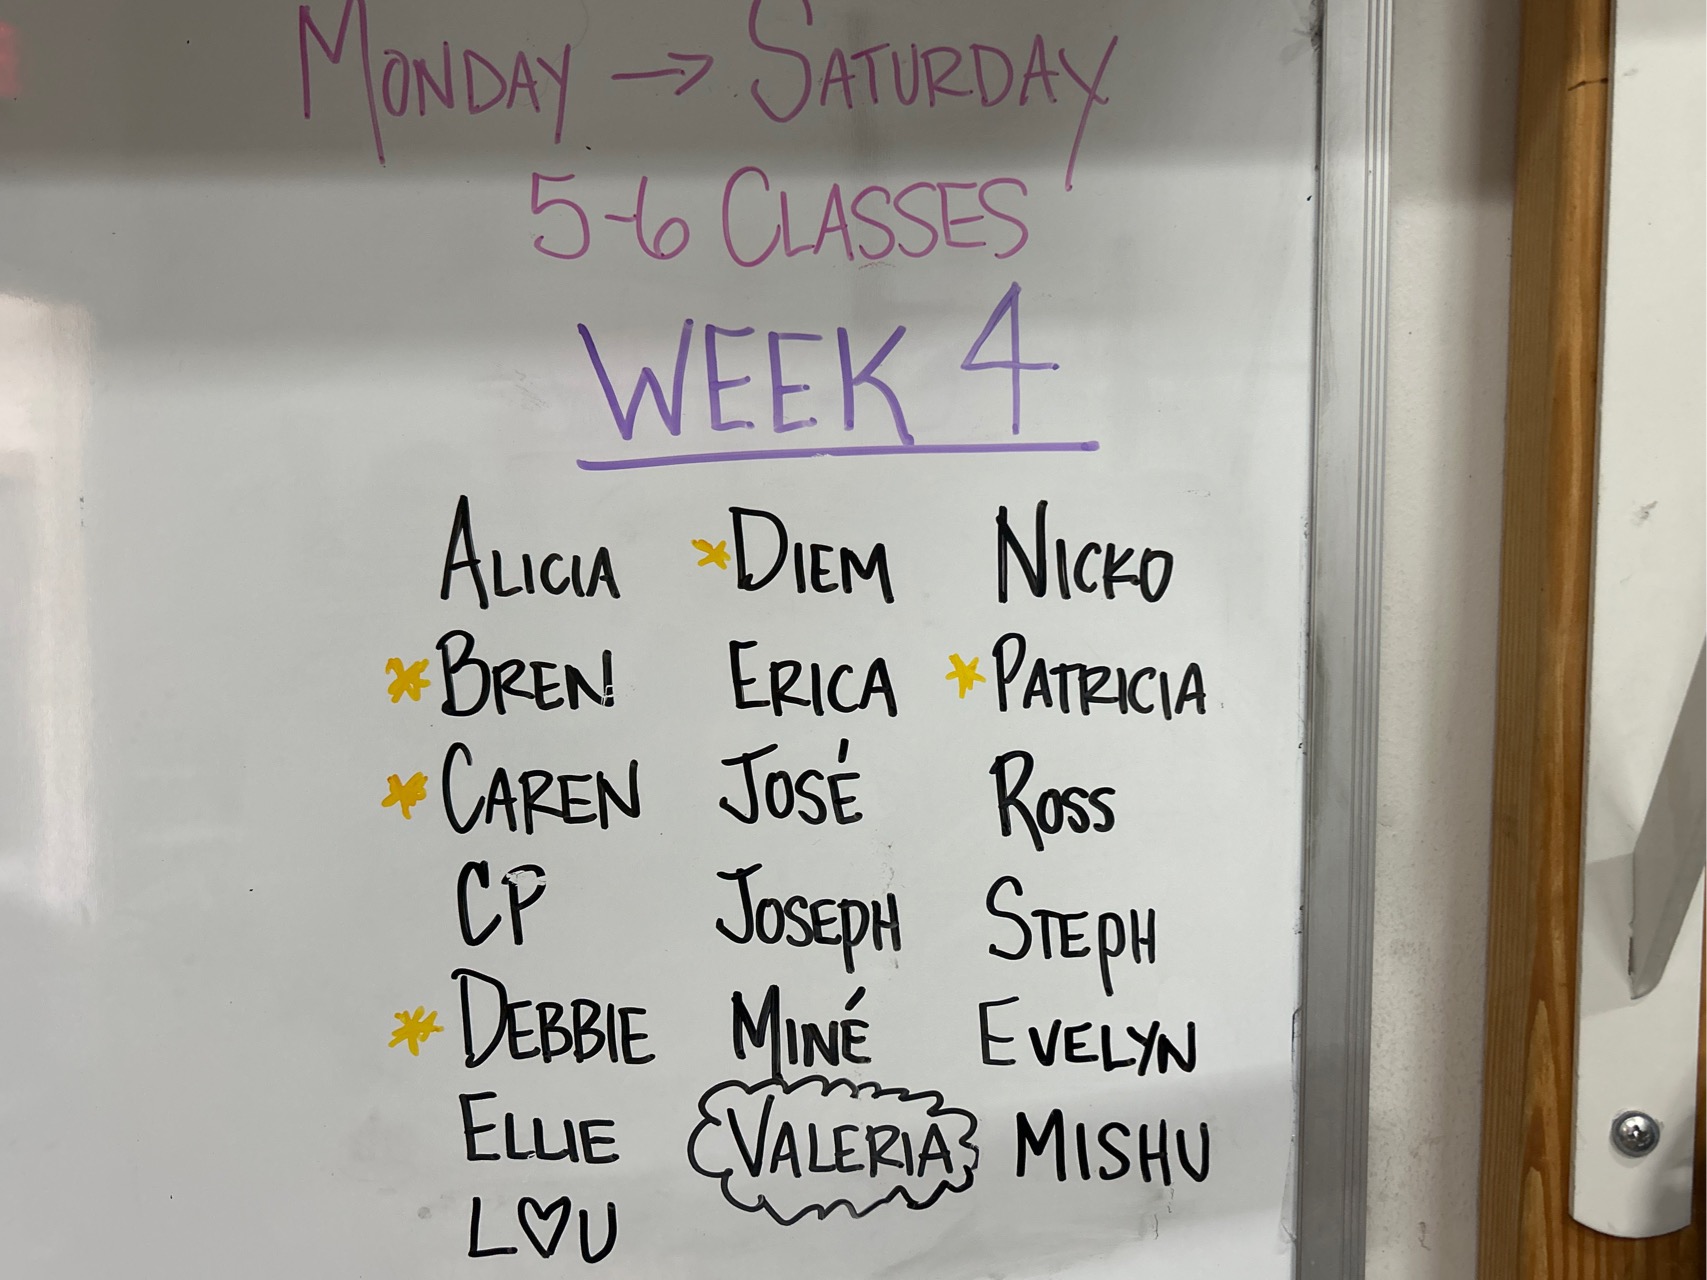 MONDAY → SATURDAY
5-6 CLASSES
WEEK 4
ALICIA *DIEM NICKO
*BREN ERICA *PATRICIA
*CAREN JOSÉ ROSS
CP JOSEPH STEPH
*DEBBIE MINÉ EVELYN
ELLIE VALERIA MISHU
L♡U